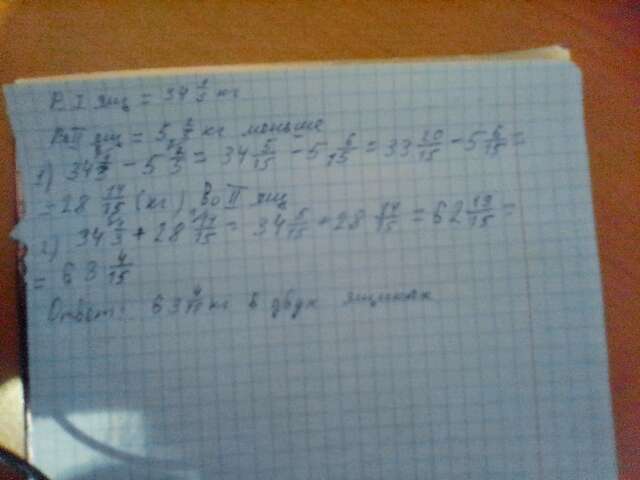 В I ящ = 34 1/3 кг
Во II ящ = 5 2/5 кг меньше
1) 34 1/3 - 5 2/5 = 34 5/15 - 5 6/15 = 33 20/15 - 5 6/15 =
= 28 14/15 (кг) во II ящ
2) 34 1/3 + 28 14/15 = 34 5/15 + 28 14/15 = 62 19/15 =
= 63 4/15
Ответ: 63 4/15 кг в двух ящиках